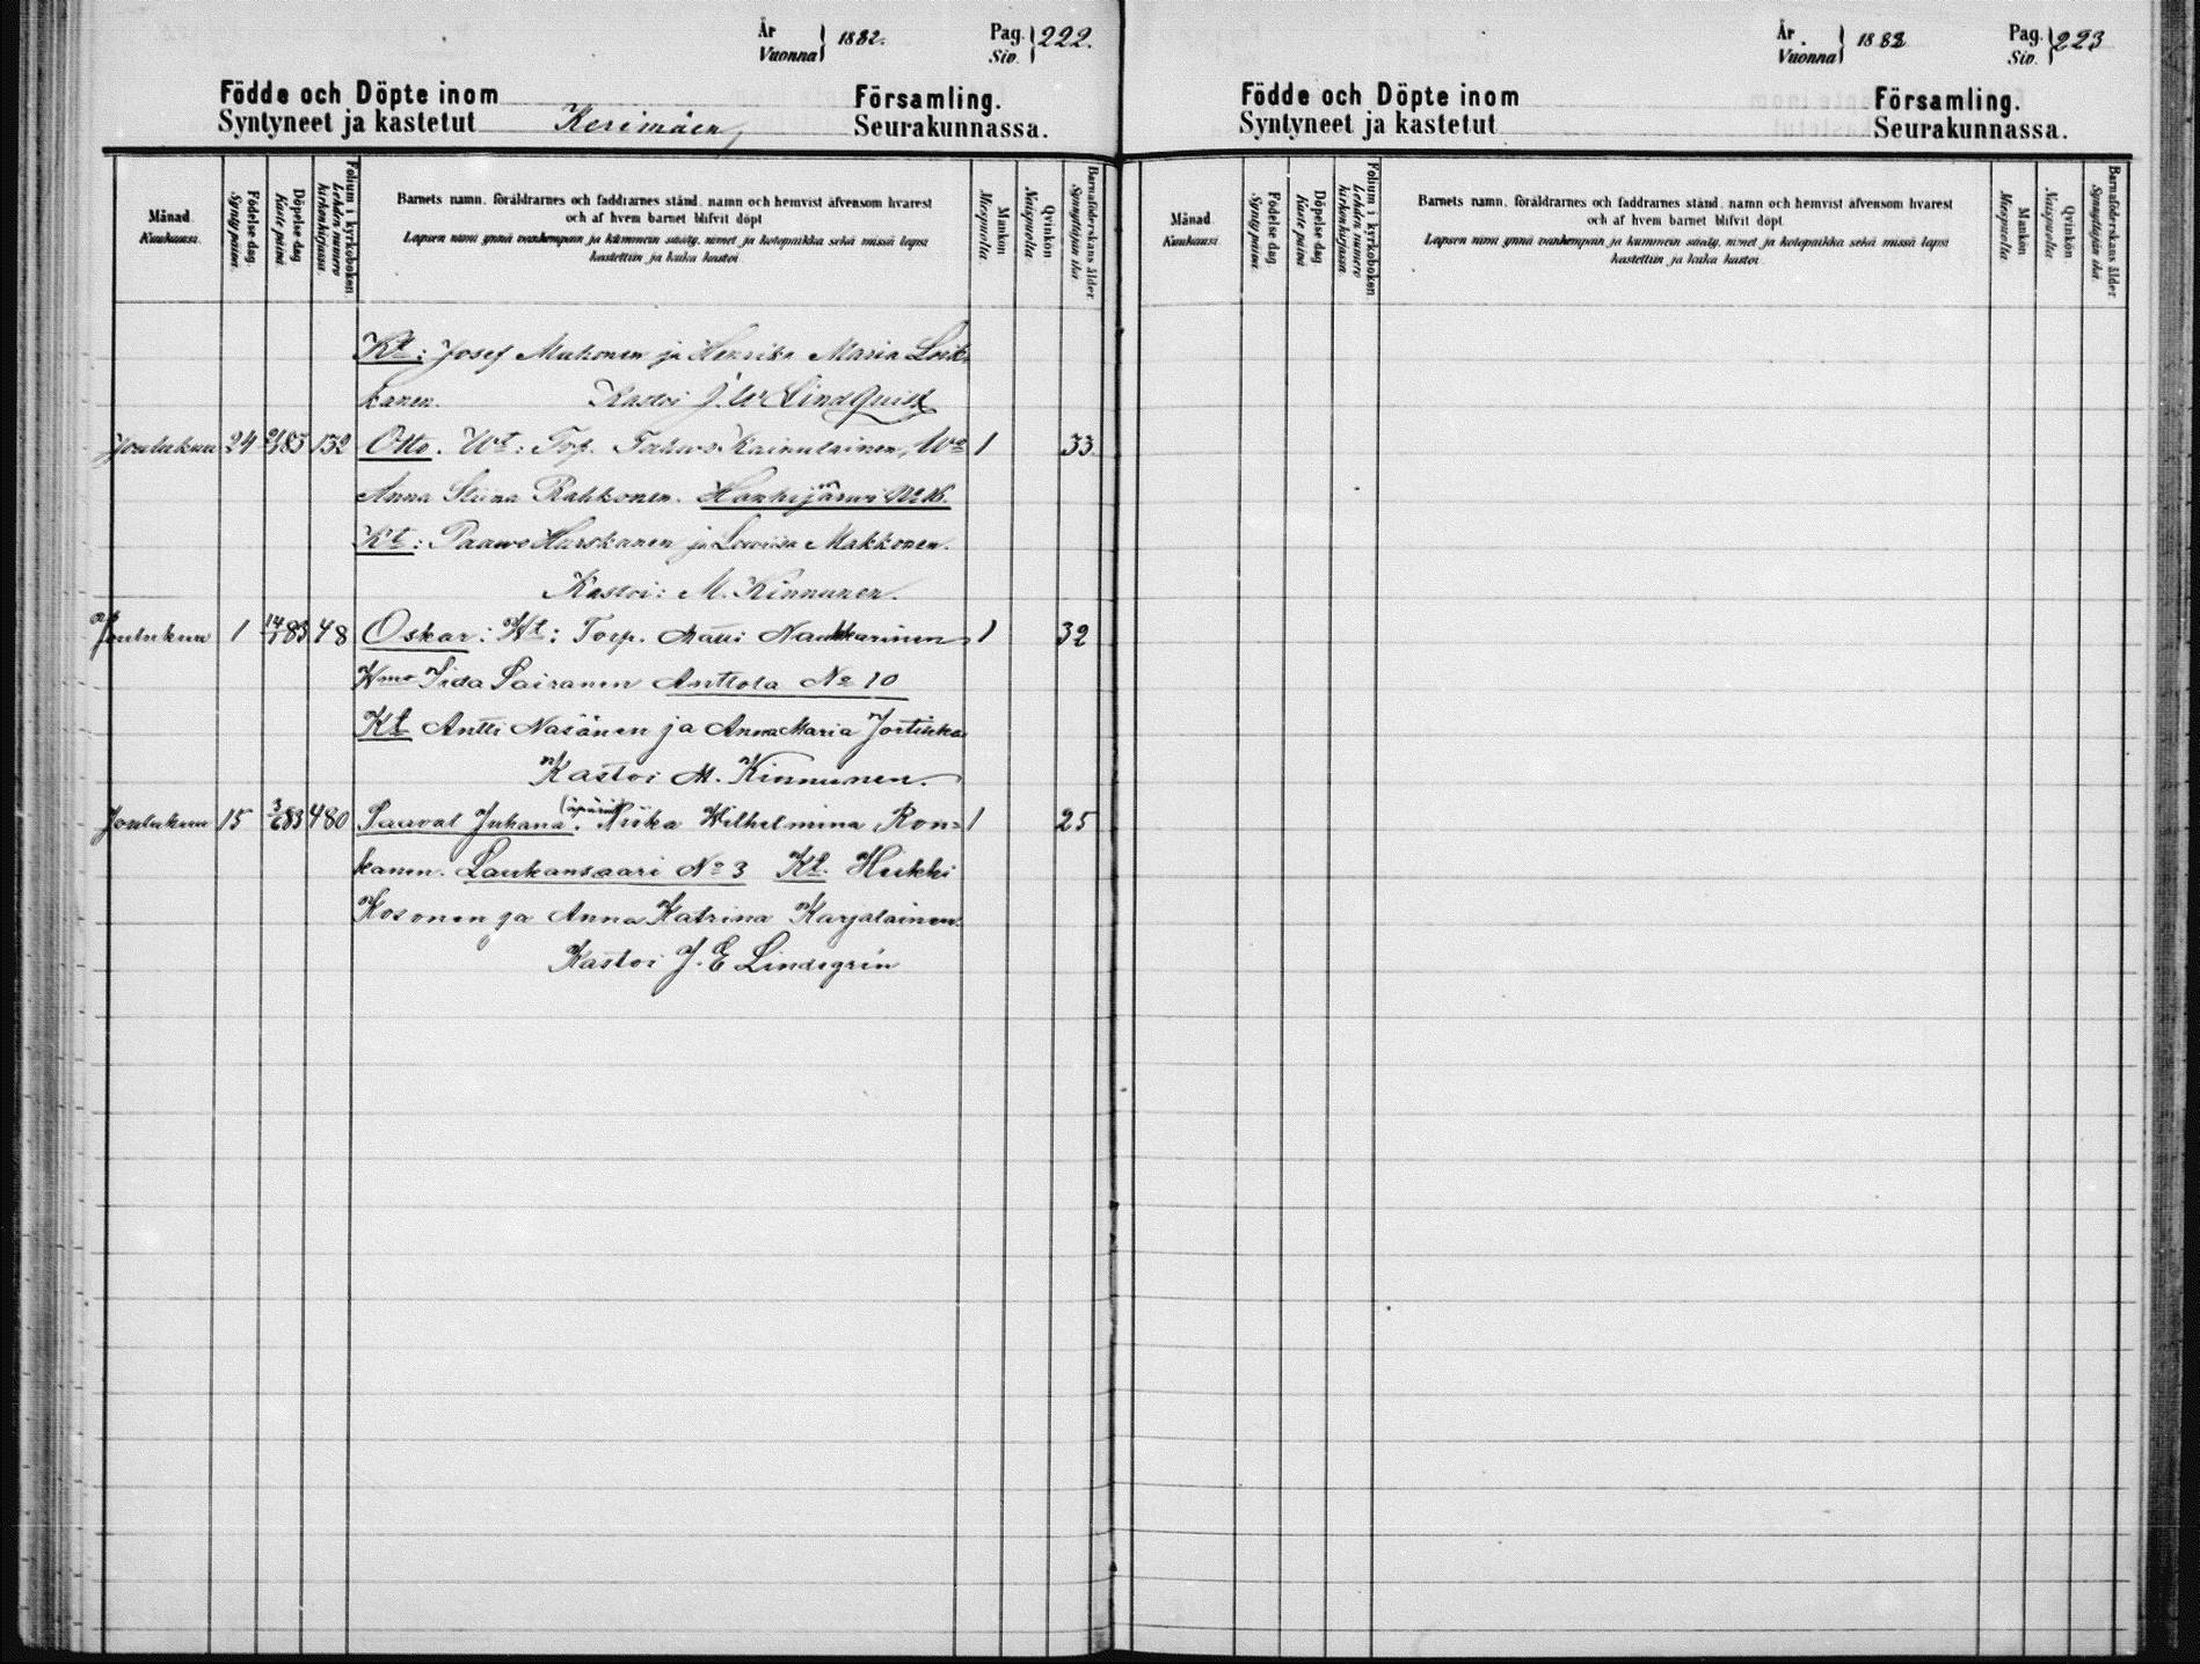 År
Vuonna } 1882.
Pag.
Siv. } 222.
Födde och Döpte inom Församling.
Syntyneet ja kastetut Kerimäen, Seurakunnassa.
Månad
Kuukausi.
Födelse dag.
Synty päivä.
Döpelse dag
Kaste päivä
Folium i kyrkoboken
Lehden numero
kirkonkirjassa
Barnets namn, föräldrarnes och faddrarnes stånd, namn och hemvist äfvensom hvarest
och af hvem barnet blifvit döpt
Lapsen nimi ynnä vanhempain ja kummein sääty, nimet ja kotopaikka sekä missä lapsi
kastettiin ja kuka kastoi
Mankön
Miespuolia
Qvinkön
Naispuolia
Barnaföderskans ålder
Synnyttäjän ikä
Kt: Josef Muhonen ja Henrika Maria Loik-
kanen. Kastoi J. W Lindquist
Joulukuu 24 83 132 Otto. Wt: Torp. Kainulainen, Wo 1 33.
Anna Stiina Rahkonen. Hanhijärwi No 16.
Kt: Paawo Harskanen ja Lowiisa Makkonen.
Kastoi: M. Kinnunen.
Joulukuu 1 14/1 83 48 Oskar: Wt: Torp. Matti Naukkarinen 1 32
Wmo Iida Pairanen Anttola No 10
Kt Antti Näsänen ja Anna Maria Jortikka
Kastoi M. Kinnunen.
Joulukuu 15 3/6 83 480 Paaval Juhana (äpärä). Piika Wilhelmina Ron= 1 25
kanen. Laukansaari No 3 Kt. Heikki
Kosonen ja Anna Katrina Karjalainen.
Kastoi J. E Lindegrén
År
Vuonna } 1882
Pag.
Siv. } 223
Födde och Döpte inom Församling.
Syntyneet ja kastetut Seurakunnassa.
Månad
Kuukausi
Födelse dag
Synty päivä.
Döpelse dag
Kaste päivä
Folium i kyrkoboken
Lehden numero
kirkonkirjassa
Barnets namn, föräldrarnes och faddrarnes stånd, namn och hemvist äfvensom hvarest
och af hvem barnet blifvit döpt
Lapsen nimi ynnä vanhempain ja kummein sääty, nimet ja kotopaikka sekä missä lapsi
kastettiin ja kuka kastoi
Mankön
Miespuolia
Qvinkön
Naispuolia
Barnaföderskans ålder
Synnyttäjän ikä